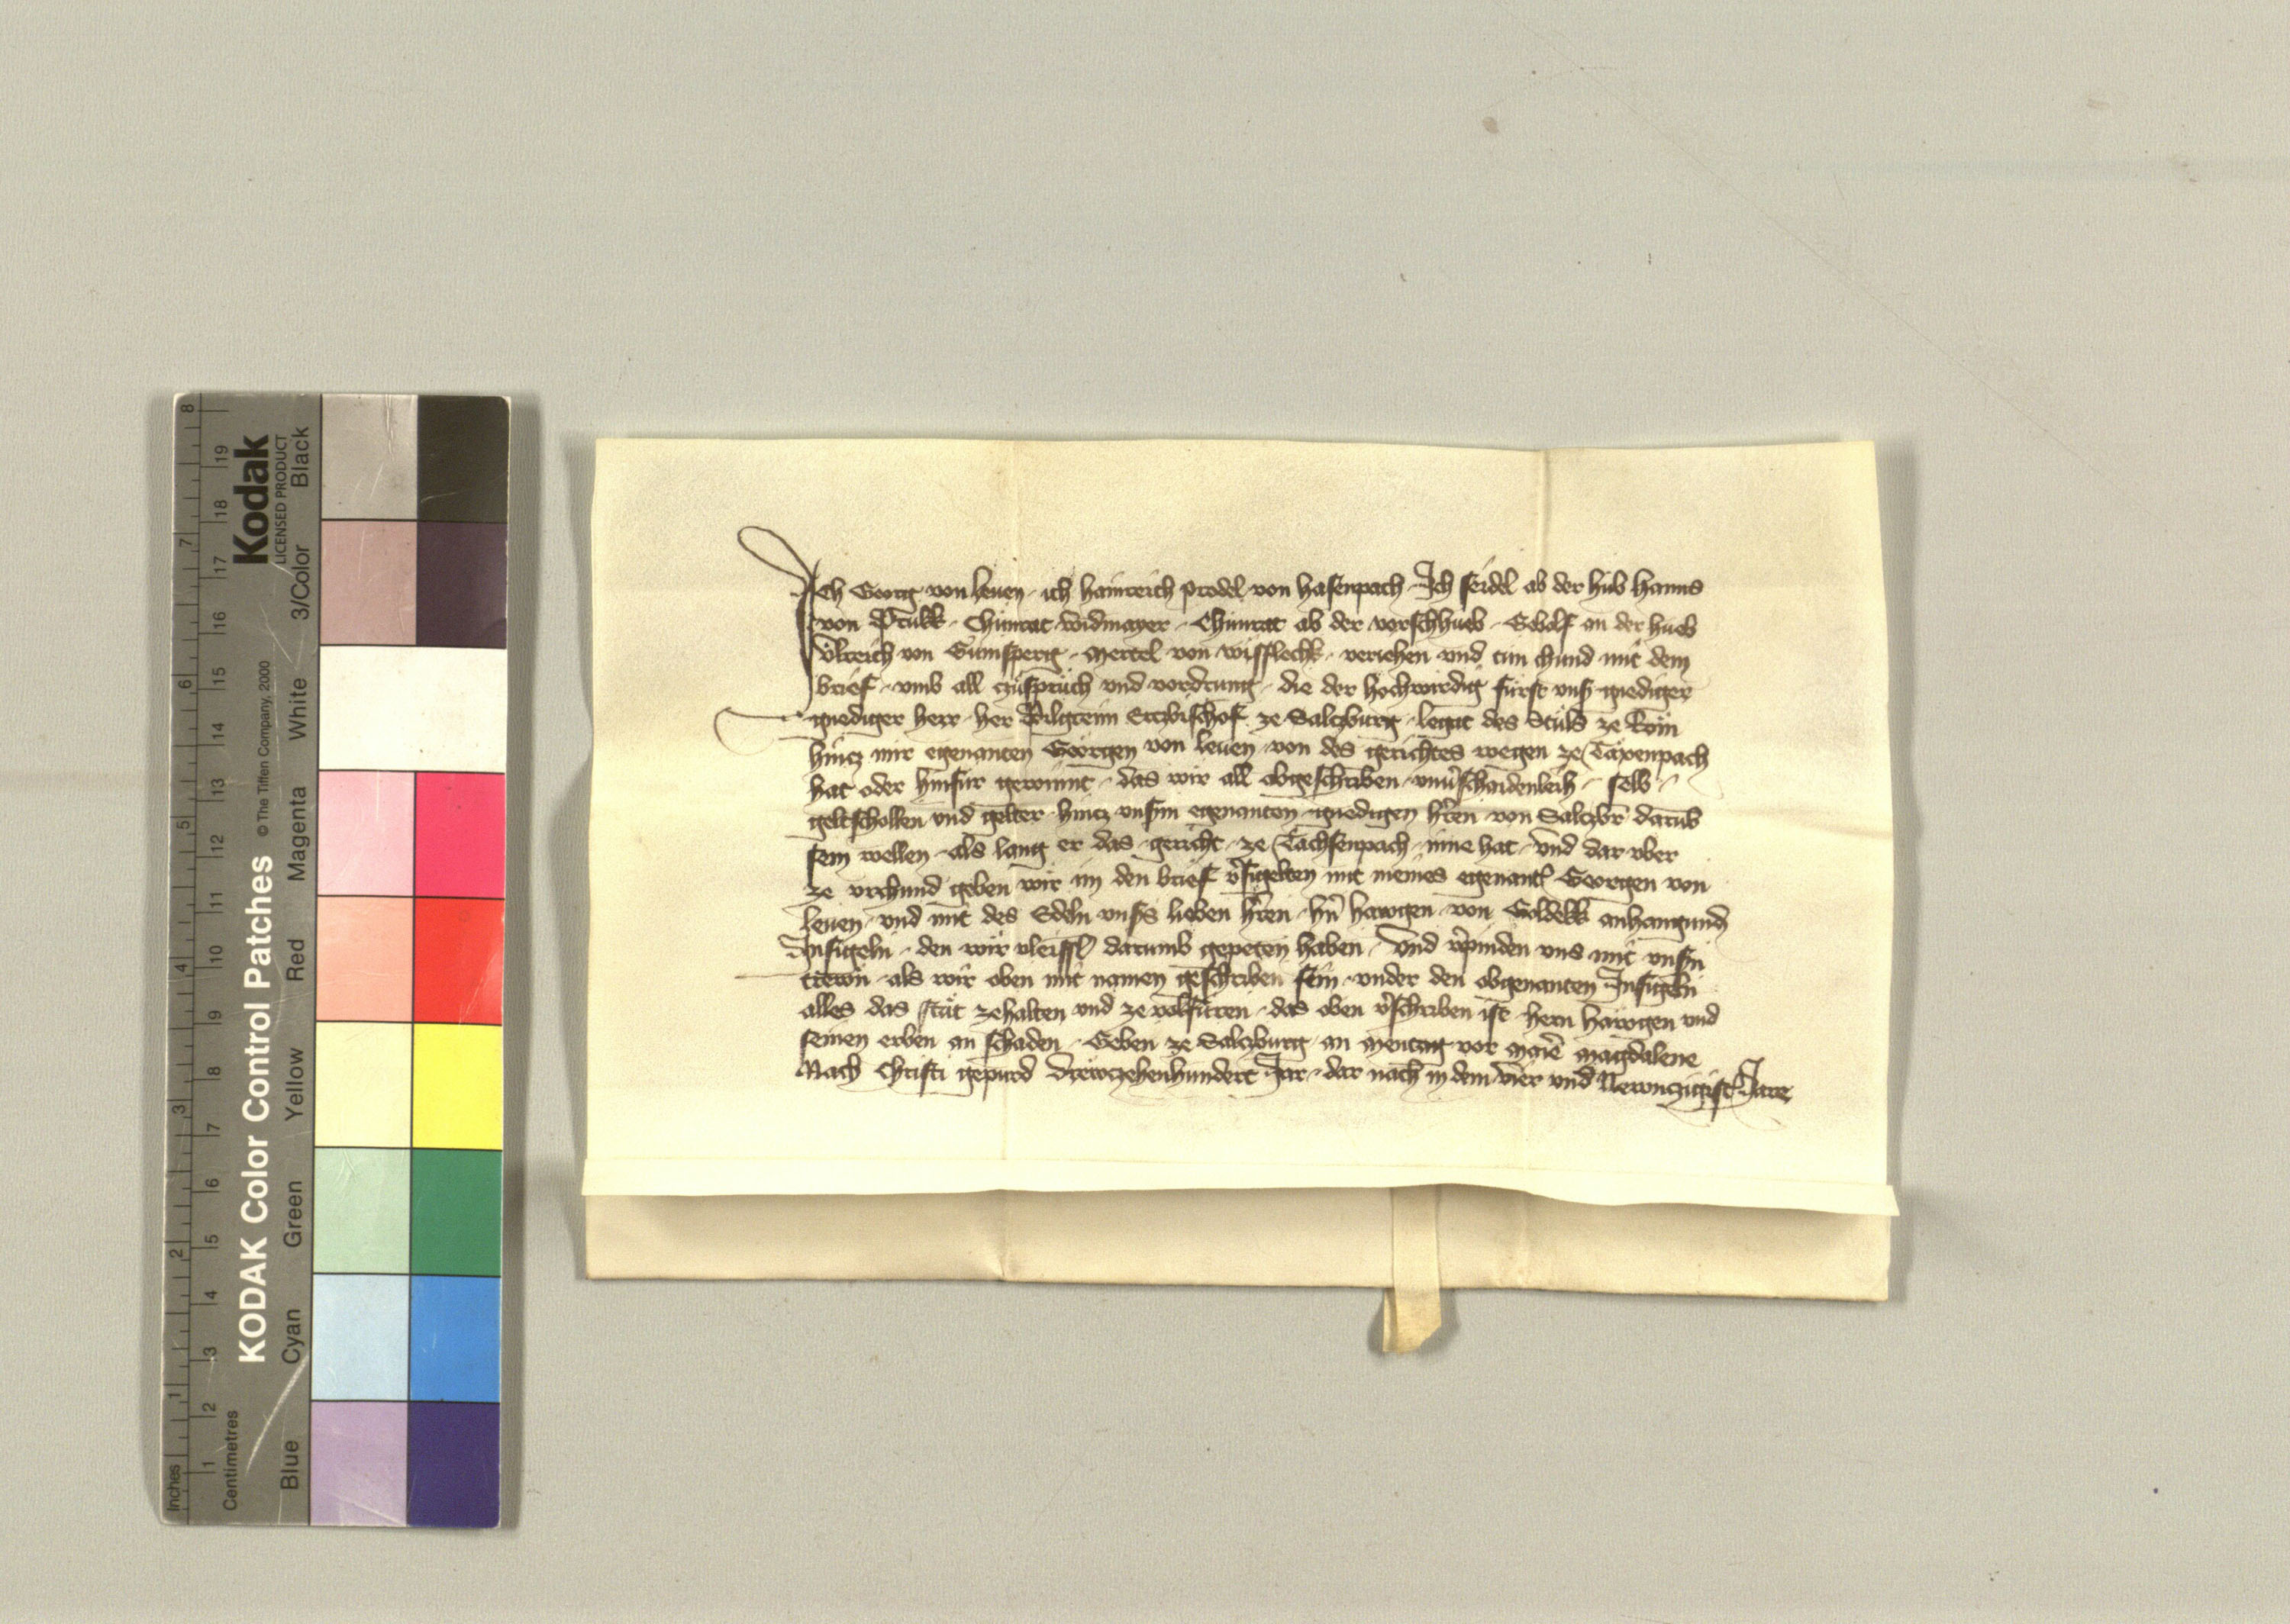 Ich Georig von Leuen · ich Hainreich Prodel von Hasenpach · Ich Seidel ab der Hub Hanns
von Prukk · Chunrat Widmayer · Chunrat ab der vorschhueb · Gebolf an der hueb
Vlreich von Gumsperg · Mertel von Wisflechk · veriehen vnd tun chund mit dem
brief · vmb all zuspruch vnd vordrung · die der hochwirdig fürst vnser gnediger
gnediger herr · her Pilgreim Ertzbischof ze Saltzburg · legat des Stuls ze Rom
hintz mir egenanten Georgen von Leuen · von des gerichtes wegen ze Täxenpach
hat oder hinfür gewinnt · das wir all obgeschriben · vnuerschaidenleich · selb ·
geltschollen vnd gelter · hintz vnserm egenanten gnedigen herren von Saltzbr darub
sein wellen · als lang er das gericht · ze Tächsenpach · inne hat · Vnd dar vber
ze vrchund geben wir im den brief versigelten mit meines egenant Georgen von
Leuen · vnd mit des Edeln vnsers lieben herren · hern Hawgen von Goldekk anhangunden
Insigeln · den wir vleissl darumb gepeten haben · Vnd verpinden vns mit vnsern
trewn · als wir oben mit namen geschriben sein · vnder den obgenanten Insigeln
alles das stät zehalten vnd ze volfüren · das oben verschriben ist hern Hawgen vnd
seinen erben an schaden · Geben ze Saltzburg an Mentag vor Marie Magdalene
Nach Christi gepurd Drewtzehenhundert Jar · dar nach in dem vier vnd Newntzigist Jare
8
7
6
5
4
3
2
1
Inches
19
18
17
16
15
14
13
12
11
10
9
8
7
6
5
4
3
2
1
Centimetres
Kodak
LICENSED PRODUCT
© The Tiffen Company, 2000
KODAK Color Control Patches
Black
3/Color
White
Magenta
Red
Yellow
Green
Cyan
Blue